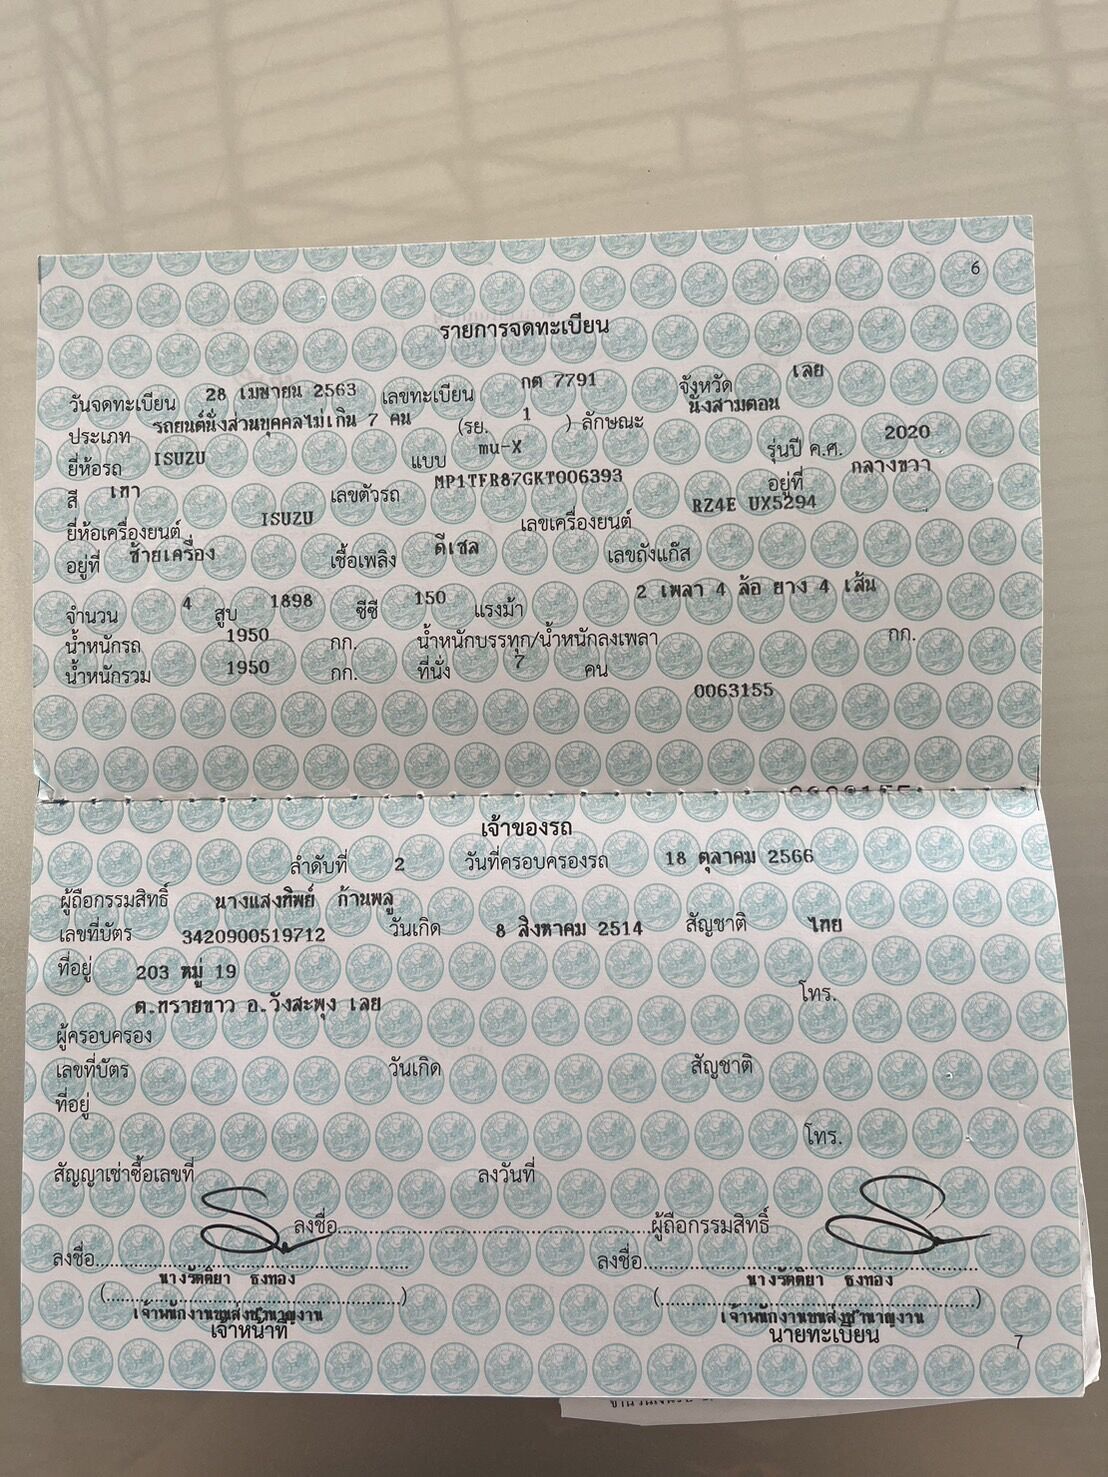 6
รายการจดทะเบียน
วันจดทะเบียน 28 เมษายน 2563 เลขทะเบียน กต 7791 จังหวัด เลย
ประเภท รถยนต์นั่งส่วนบุคคลไม่เกิน 7 คน (รย. 1 ) ลักษณะ นั่งสามตอน
ยี่ห้อรถ ISUZU แบบ mu-X รุ่นปี ค.ศ. 2020
สี เทา เลขตัวรถ MP1TFR87GKT006393 อยู่ที่ กลางขวา
ยี่ห้อเครื่องยนต์ ISUZU เลขเครื่องยนต์ RZ4E UX5294
อยู่ที่ ซ้ายเครื่อง เชื้อเพลิง ดีเซล เลขถังแก๊ส
จำนวน 4 สูบ 1898 ซีซี 150 แรงม้า 2 เพลา 4 ล้อ ยาง 4 เส้น
น้ำหนักรถ 1950 กก. น้ำหนักบรรทุก/น้ำหนักลงเพลา กก.
น้ำหนักรวม 1950 กก. ที่นั่ง 7 คน
0063155
เจ้าของรถ
ลำดับที่ 2 วันที่ครอบครองรถ 18 ตุลาคม 2566
ผู้ถือกรรมสิทธิ์ นางแสงทิพย์ ก้านพลู
เลขที่บัตร 3420900519712 วันเกิด 8 สิงหาคม 2514 สัญชาติ ไทย
ที่อยู่ 203 หมู่ 19
ต.ทรายขาว อ.วังสะพุง เลย โทร.
ผู้ครอบครอง
เลขที่บัตร วันเกิด สัญชาติ
ที่อยู่
โทร.
สัญญาเช่าซื้อเลขที่ ลงวันที่
ลงชื่อ ผู้ถือกรรมสิทธิ์
ลงชื่อ ลงชื่อ
นางรัตติยา ธงทอง นางรัตติยา ธงทอง
( ) ( )
เจ้าพนักงานขนส่งชำนาญงาน เจ้าพนักงานขนส่งชำนาญงาน
เจ้าหน้าที่ นายทะเบียน
7